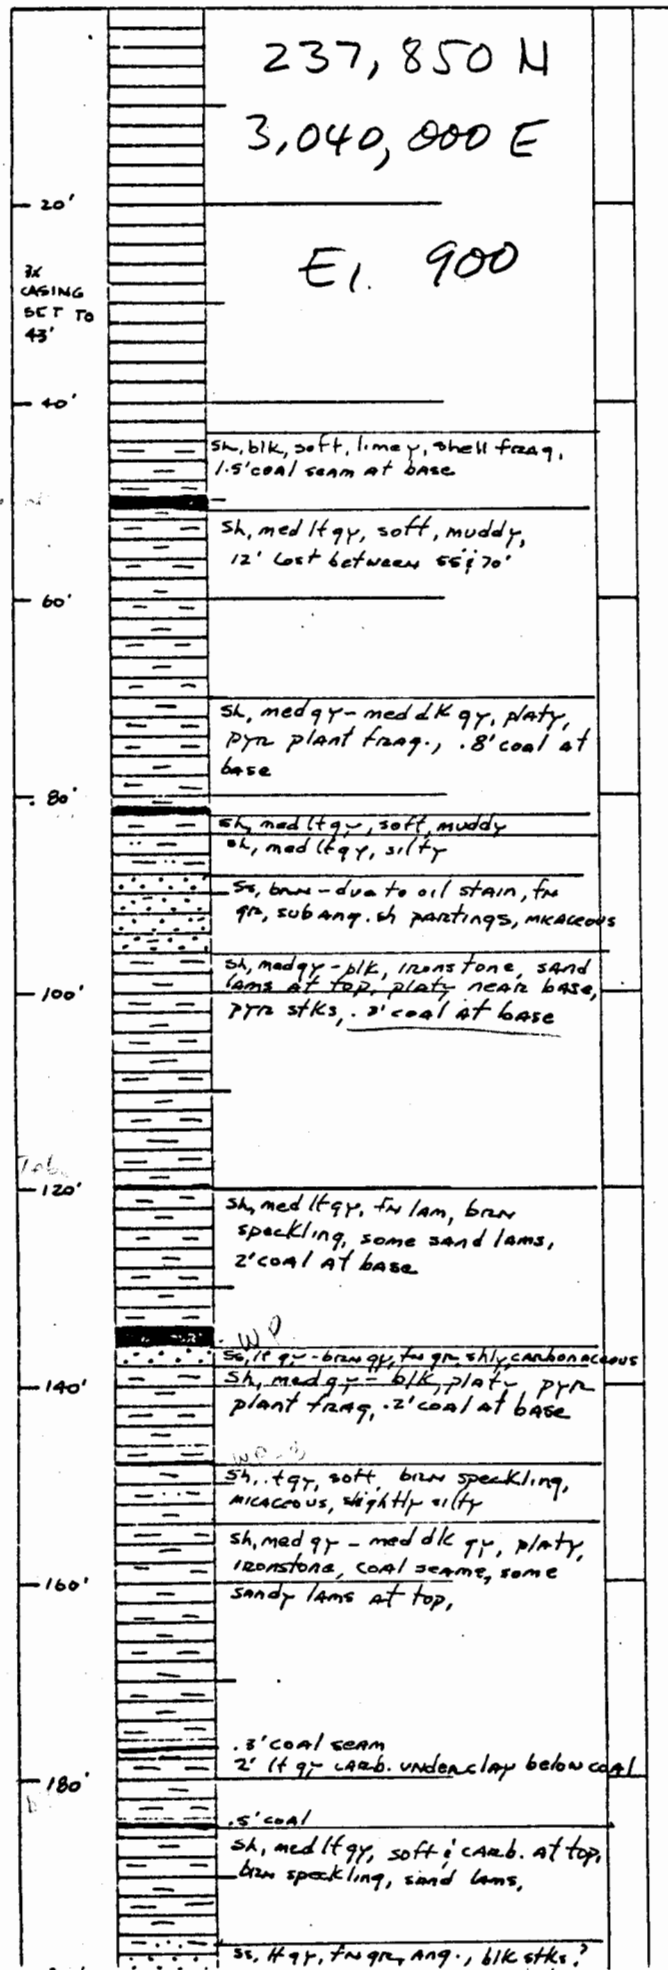 237,850 N
3,040,000 E
20'
El. 900
CASING
SET TO
43'
40'
sh, blk, soft, limey, shell frag,
1.5' coal seam at base
sh, med lt gy, soft, muddy,
12' lost between 55' & 70'
60'
sh, med gy - med dk gy, platy,
pyr plant frag., .8' coal at
base
80'
sh, med lt gy, soft, muddy
sh, med lt gy, silty
ss, brn - due to oil stain, fn
gr, subang. sh partings, micaceous
sh, med gy - blk, ironstone, sand
lams at top, platy near base,
100'
pyr stks, coal at base
120'
sh, med lt gy, fn lam, brn
speckling, some sand lams,
2' coal at base
WP
ss, lt gy - brn gy, fn gr, shly, carbonaceous
140'
sh, med gy - blk, platy, pyr
plant frag, .2' coal at base
sh, lt gy, soft, brn speckling,
micaceous, slightly silty
sh, med gy - med dk gy, platy,
ironstone, coal seams, some
160'
sandy lams at top,
.3' coal seam
2' lt gy carb. underclay below coal
180'
.5' coal
sh, med lt gy, soft & carb. at top,
brn speckling, sand lams,
ss, lt gy, fn gr, ang., blk stks.?